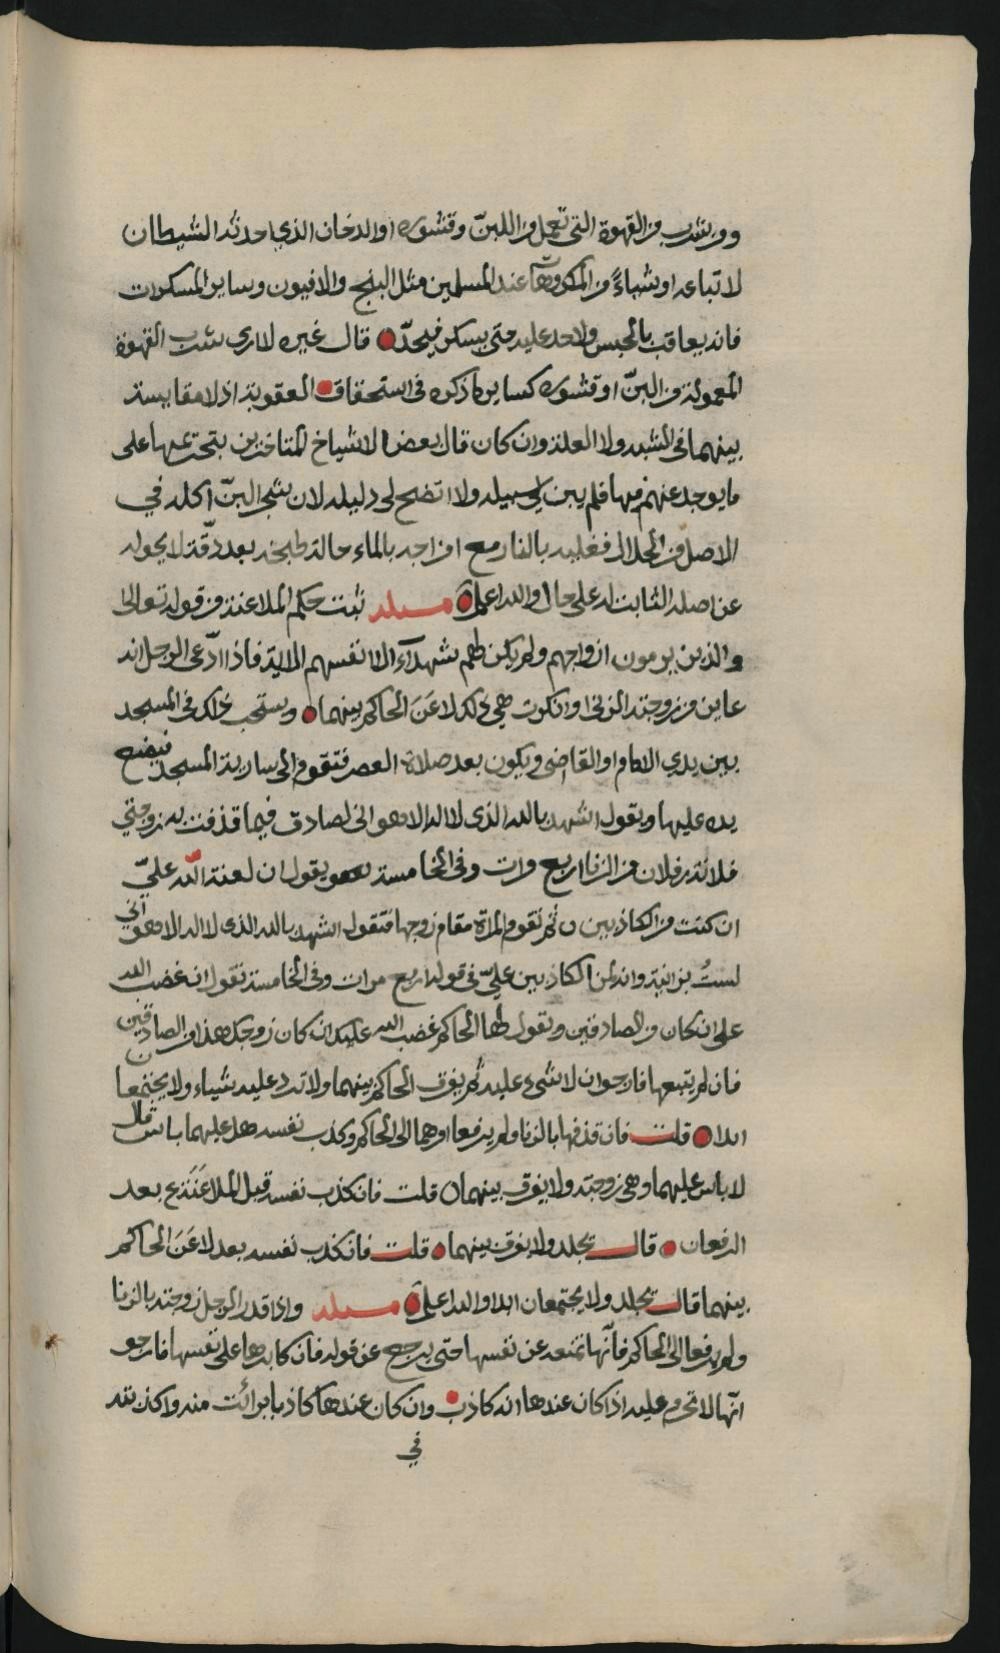 ومن شرب من القهوة التي تعمل من اللبنّ وقشوره او الدخان الذي احدثه الشيطان
لاتباعه او شياءً من المكروهاّ عند المسلمين مثل البنج والافيون وساير المسكرات
فانه يعاقب بالحبس ولا حد عليه حتى يسكر فيحدّ قال غيره لا ارى شرب القهوة
المعمولة من البنّ او قشوره كساير ما ذكره في استحقاق العقوبة اذ لا مقايسة
بينهما في الشبه ولا العلة وان كان قال بعض الاشياخ المتاخرين بتحريمها على
ما يوجد عنهم فيها فلم يبن لي سبيله ولا اتضح لي دليله لان شجر البنّ اكله في
الاصل من الحلال فغليه بالنار مع امزاجه بالماء حالة طبخه بعد دقّة لا يحوله
عن اصله الثابت له على حال والله اعلم مسئلة ثبت حكم الملاعنة من قوله تعالى
والذين يرمون ازواجهم ولم يكن لهم شهدآء الا انفسهم الاية فاذا ادّعى الرجل انه
عاين من زوجته الزنى وانكرت هي ذلك لاعَنَ الحاكم بينهما ويستحب ذلك في المسجد
بين يدي الامام او القاضي ويكون بعد صلاة العصر فتقوم الى سارية المسجد فيضع
يده عليها ويقول اشهد بالله الذي لا اله الا هو اني لصادق فيما قذفت به زوجتي
فلانة بنت فلان من الزنا اربع مرات وفي الخامسة يقول ان لعنة اللّه عليّ
ان كنت من الكاذبين ثم تقوم المرأة مقام زوجها فتقول اشهد بالله الذي لا اله الا هو اني
لستُ بزانية وانه لمن الكاذبين عليّ في قوله اربع مرات وفي الخامسة تقول ان غضب الله
علي ان كان من الصادقين ويقول لها الحاكم غضب الله عليك ان كان زوجك هذا من الصادقين
فان لم يتبعها فارجو ان لا شيء عليه ثم يفرق الحاكم بينهما ولا ترد عليه شياء ولا يجتمعا
ابدا قلت فان قذفها بالزنا ولم يرفعا امرهما الى الحاكم وكذب نفسه هل عليهما باس قال
لا باس عليهما وهي زوجته ولا يفرق بينهما قلت فان كذب نفسه قبل الملاعَنَة بعد
الرفعان قال يجلد ولا يفرق بينهما قلت فان كذب نفسه بعد لاعَنَ الحاكم
بينهما قال يجلد ولا يجتمعان ابدا والله اعلم مسئلة واذا قذف الرجل زوجته بالزنا
ولم يرفعا الى الحاكم فانّها تمنعه عن نفسها حتى يرجع عن قوله فان كابرها على نفسها فارجو
انّها لا تحرم عليه اذا كان عندها انه كاذب وان كان عندها كاذبا برائت منه واكذبته
في